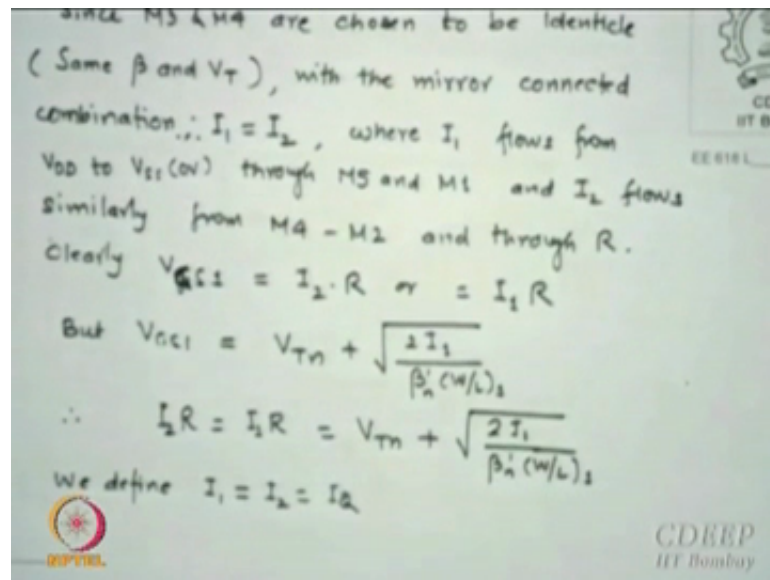 since M3 & M4 are chosen to be Identicle
(Same β and VT), with the mirror connected
combination ∴ I1 = I2, where I1 flows from
VDD to VSS (0V) through M3 and M1 and I2 flows
similarly from M4 - M2 and through R.
Clearly VGS1 = I2 . R or = I1 R
But VGS1 = VTn + √(2 I1 / β'n (W/L)1)
∴ I2R = I1R = VTn + √(2 I1 / β'n (W/L)1)
We define I1 = I2 = IQ
NPTEL
CDEEP
IIT Bombay
EE 618 L